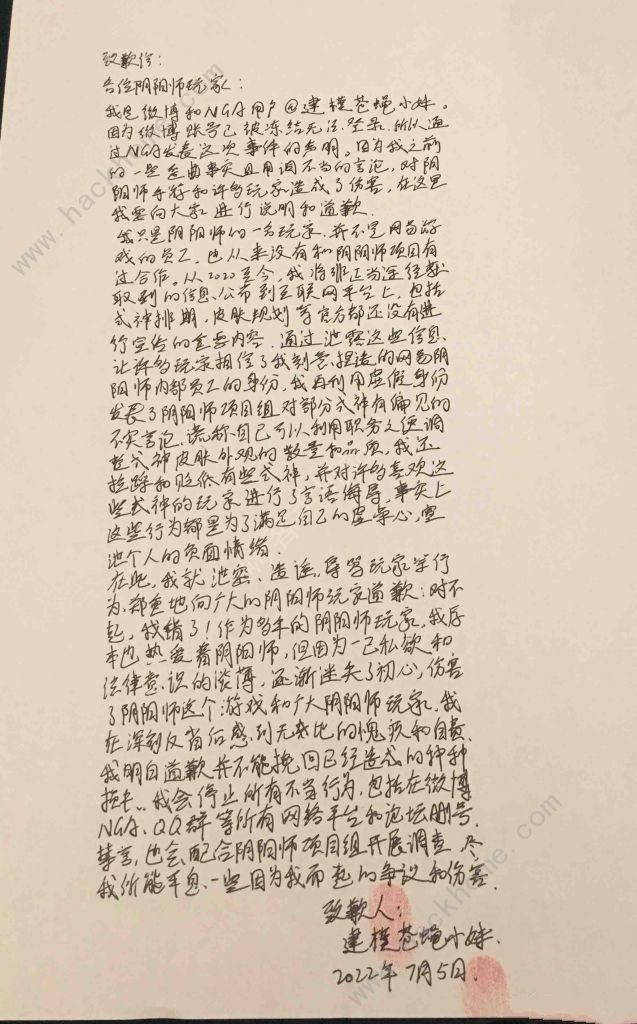 致歉信：
各位阴阳师玩家：
我是微博和NGA用户@建模苍蝇小妹。
因为微博账号已被冻结无法登录，所以通
过NGA发表这次事件的声明。因为我之前
的一些歪曲事实且用词不当的言论，对阴
阳师手游和许多玩家造成了伤害，在这里
我要向大家进行说明和道歉.
我只是阴阳师的一名玩家，并不是网易游
戏的员工，也从来没有和阴阳师项目有
过合作。从2020至今，我将非正当途径获
取到的信息、公布到互联网平台上，包括
式神排期，皮肤规划等官方都还没有进
行宣传的重要内容，通过泄露这些信息、
让许多玩家相信了我刻意捏造的网易阴
阳师内部员工的身份，我再利用虚假身份
发表了阴阳师项目组对部分式神有偏见的
不实言论，谎称自己可以利用职务之便调
整式神皮肤外观的数量和品质，我还
拉踩和贬低有些式神，并对许多喜欢这
些式神的玩家进行了言语侮辱，事实上
这些行为都是为了满足自己的虚荣心，宣
泄个人的负面情绪.
在此，我就泄密、造谣、辱骂玩家等行
为，郑重地向广大的阴阳师玩家道歉：对不
起，我错了！作为多年的阴阳师玩家，我原
本也热爱着阴阳师，但因为一己私欲和
法律意识的淡薄，逐渐迷失了初心，伤害
了阴阳师这个游戏和广大阴阳师玩家，我
在深刻反省后感到无比的愧疚和自责.
我明白道歉并不能挽回已经造成的种种
损失，我会停止所有不当行为，包括在微博
NGA、QQ群等所有网络平台和论坛删号、
禁言，也会配合阴阳师项目组开展调查，尽
我所能平息一些因为我而起的争议和伤害.
致歉人：
建模苍蝇小妹.
2022年7月5日.
www.hackhome.com
www.hackhome.com